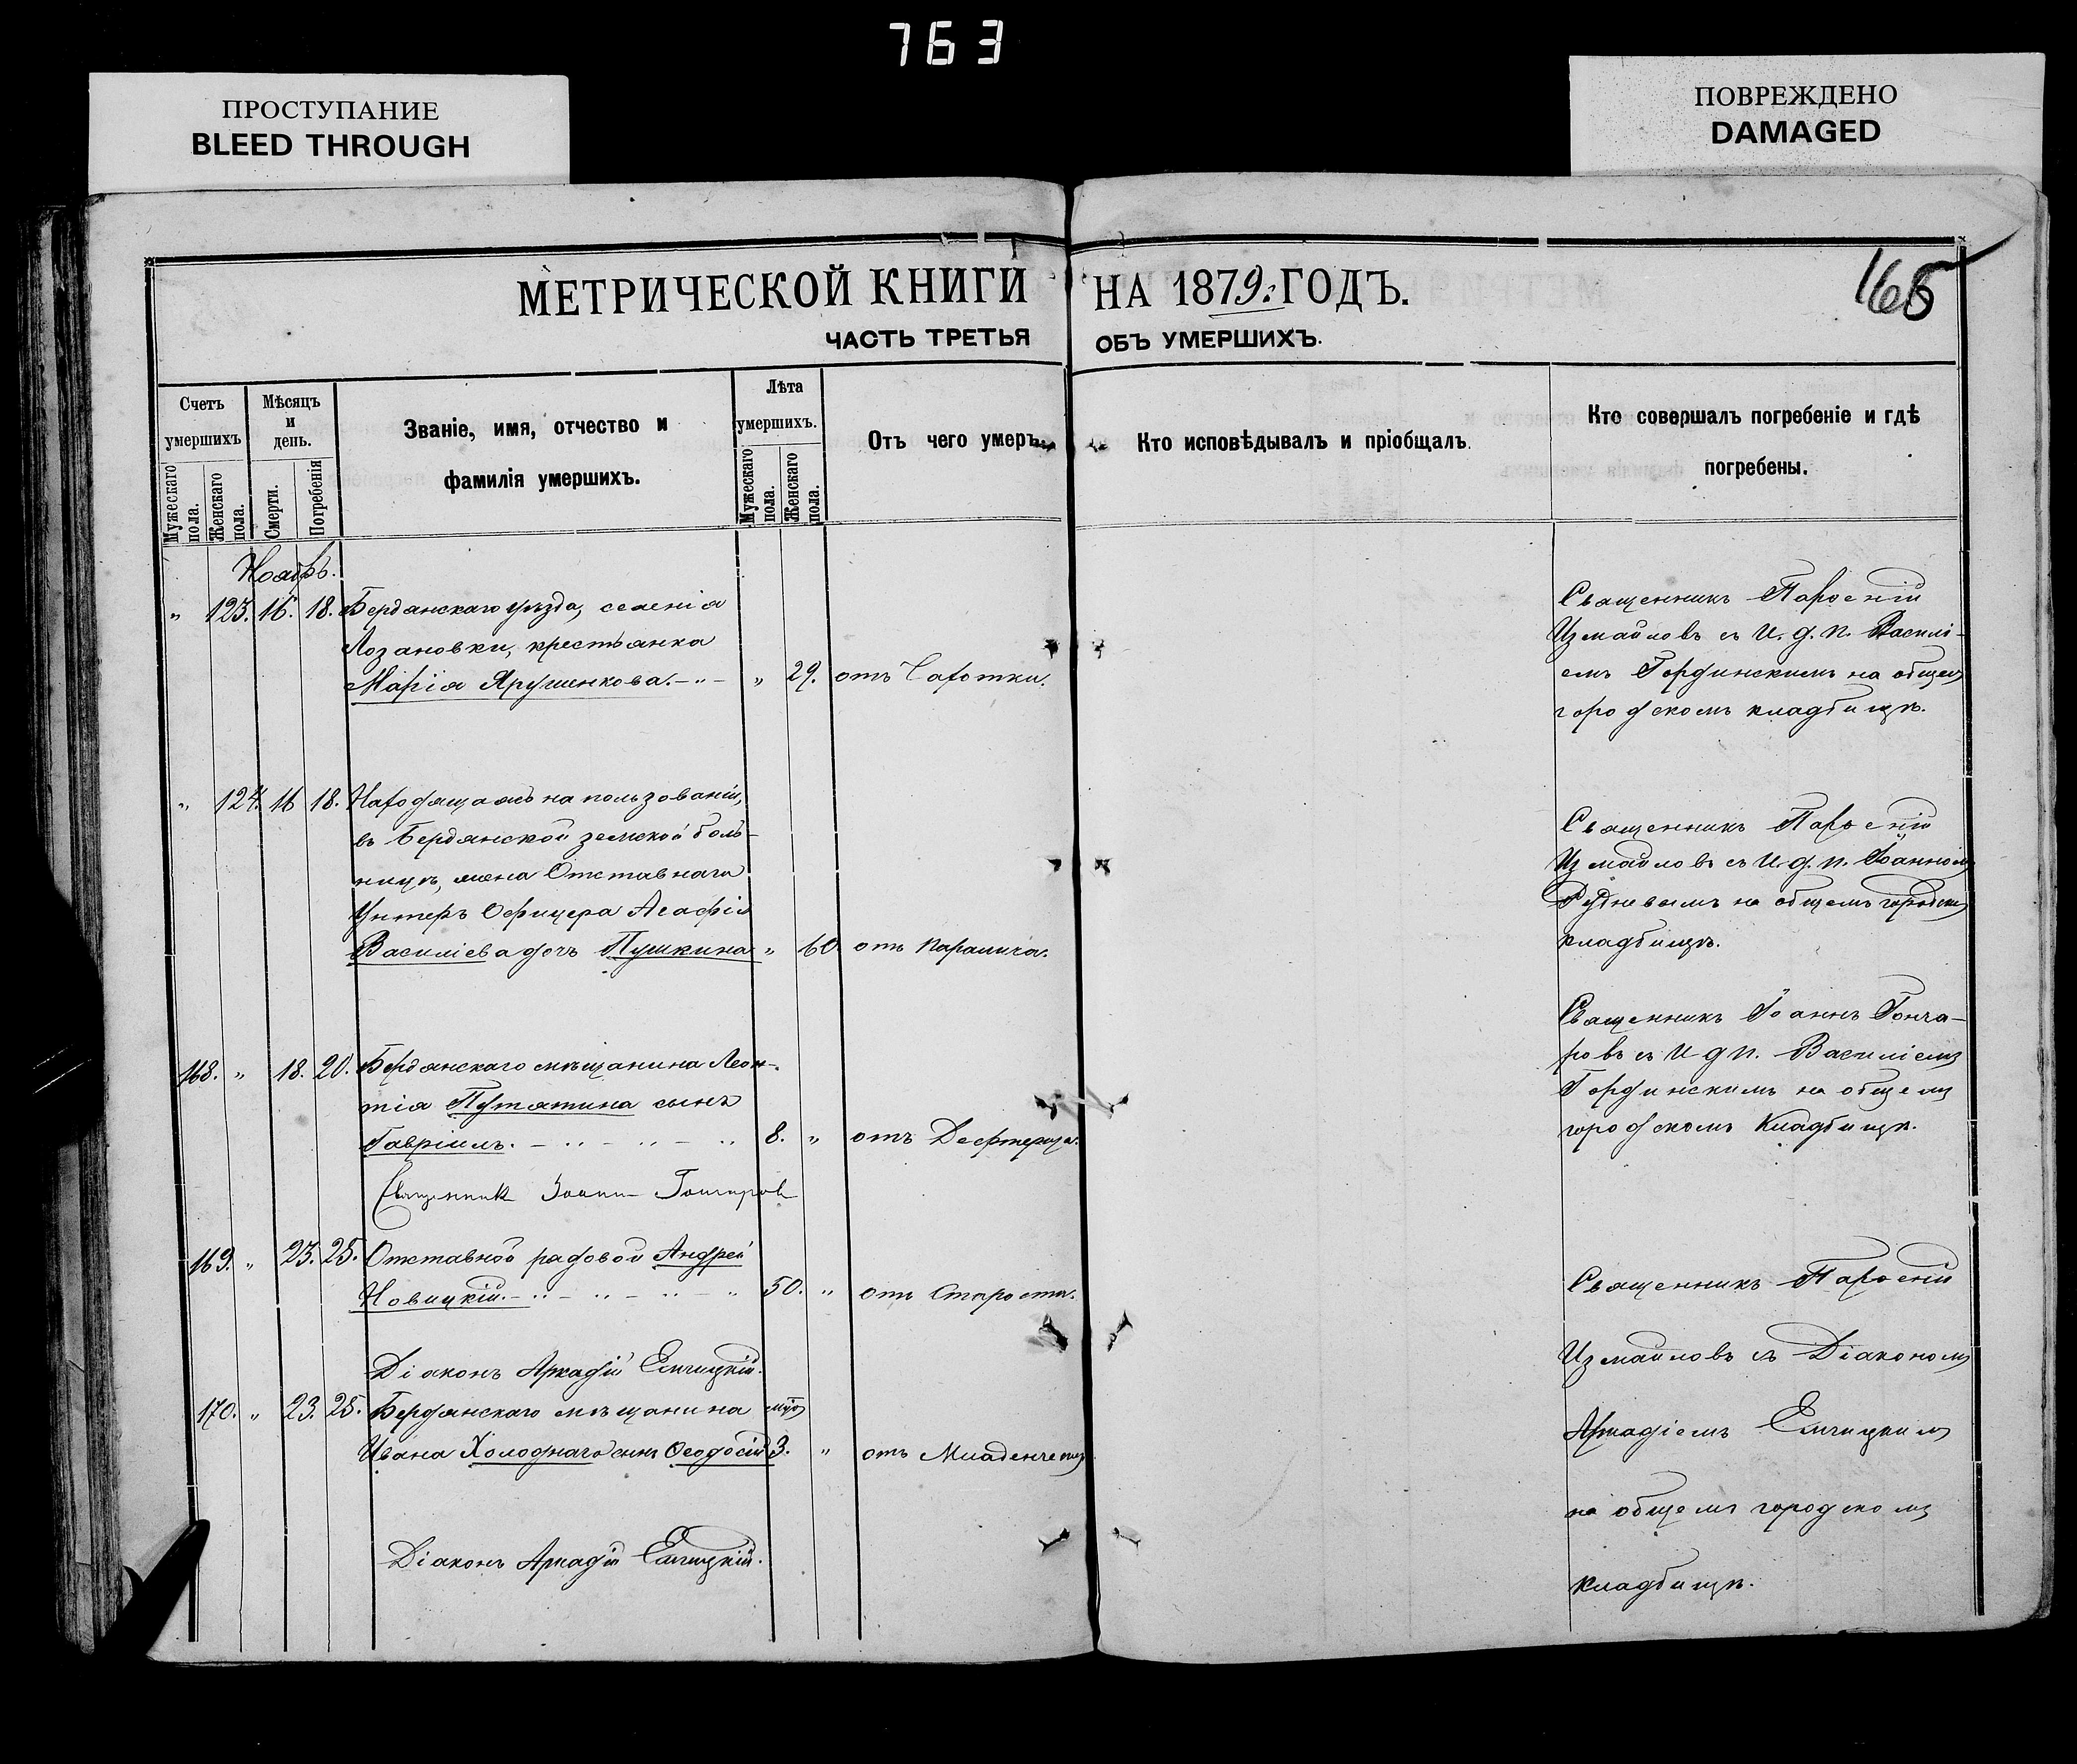 763
ПРОСТУПАНИЕ
BLEED THROUGH
ПОВРЕЖДЕНО
DAMAGED
МЕТРИЧЕСКОЙ КНИГИ НА 1879: ГОДЪ.
165
ЧАСТЬ ТРЕТЬЯ ОБЪ УМЕРШИХЪ.
Счетъ умершихъ
Мужескаго пола.
Женскаго пола.
Мѣсяцъ и день.
Смерти.
Погребенія
Званіе, имя, отчество и
фамилія умершихъ.
Лѣта умершихъ.
Мужескаго пола.
Женскаго пола.
Отъ чего умеръ.
Кто исповѣдывалъ и пріобщалъ.
Кто совершалъ погребеніе и гдѣ
погребены.
Ноябрь.
" 123. 16. 18. Бердянскаго уѣзда, селенія
Лозановки, крестьянка
Марія Ярушенкова. - " - " 29. отъ Чахотки.
Священникъ Парѳеній
Измаиловъ съ и. д. п. Василі-
емъ Гординскимъ на общем
городскомъ кладбищѣ.
" 124. 16 18. Находящаясь на пользованіи,
въ Бердянской земской боль-
ницѣ, жена Отставнаго
Унтеръ Офицера Агафія
Василіева дочь Пушкина " 60. отъ Паралича.
Священникъ Парѳеній
Измаиловъ съ и. д. п. Іоанномъ
Рудневымъ на общемъ городском
кладбищѣ.
168. " 18. 20. Бердянскаго мѣщанина Леон-
тія Путятина сынъ
Гавріилъ. - " - " - " 8. " отъ Дефтерита.
Священникъ Іоаннъ Гонча-
ровъ съ и д п. Василіемъ
Гординскимъ на общемъ
городскомъ Кладбищѣ.
Священник Иоанн Гончаров
169. " 23. 25. Отставной рядовой Андрей
Новицкій. - " - " - " - " 50. " отъ Старости.
Діаконъ Аркадій
170. " 23. 25. Бердянскаго мѣщанина
Ивана Холоднаго сынъ Ѳеодосій 3. " отъ Младенческ.
Діаконъ Аркадій
Священникъ Парѳеній
Измаиловъ съ Діакономъ
Аркадіемъ
на общемъ городскомъ
кладбищѣ.